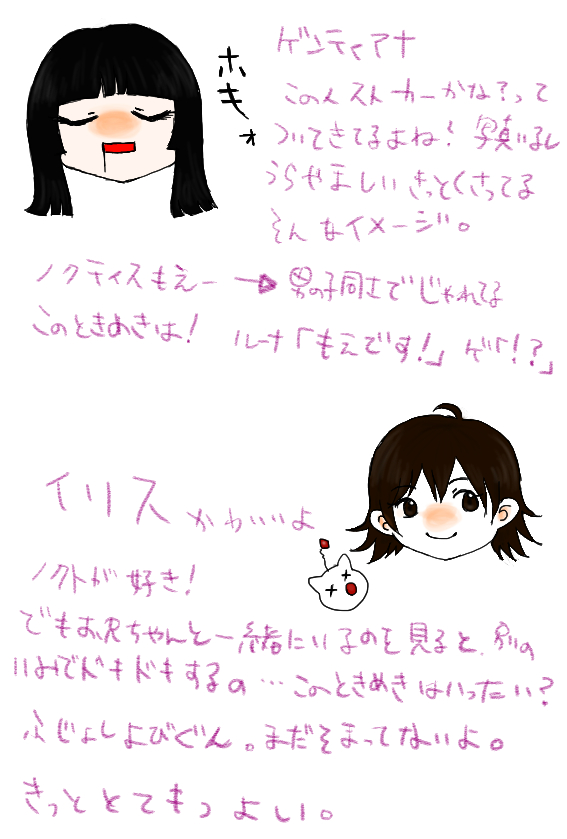 ゲンティアナ
ホキょ
この人ストーカーかな?って
ついてきてるよね! 写真いるし
うらやましい きっとくさってる
そんなイメージ。
ノクティスもえー → 男の子同士でじゃれてる
このときめきは! ルーナ「もえです!」 ゲ「!?」
イリス かわいいよ
ノクトが好き!
でもお兄ちゃんと一緒にいるのを見ると、別の
いみでドキドキするの…このときめきはいったい?
ふじょしよびぐん。まだそまってないよ。
きっととてもつよい。